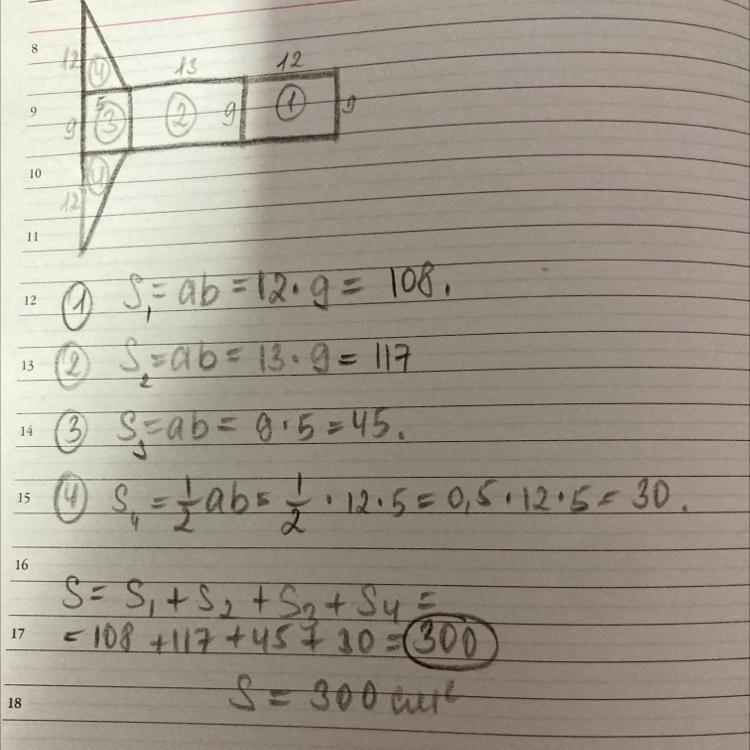 8
12
4
13
12
9
5
9
3
2
9
1
9
10
4
12
11
12 ① S₁ = ab = 12 · 9 = 108.
13 ② S₂ = ab = 13 · 9 = 117
14 ③ S₃ = ab = 9 · 5 = 45.
15 ④ S₄ = 1/2 ab = 1/2 · 12 · 5 = 0,5 · 12 · 5 = 30.
16
S = S₁ + S₂ + S₃ + S₄ =
17 = 108 + 117 + 45 + 30 = 300
18 S = 300 см²